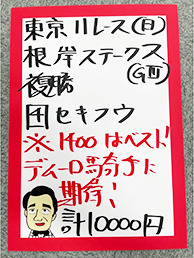 東京11レース(日)
根岸ステークス
(GⅢ)
複勝
団セキフウ
※1400はベスト!
デムーロ騎手に
期待!
計10000円